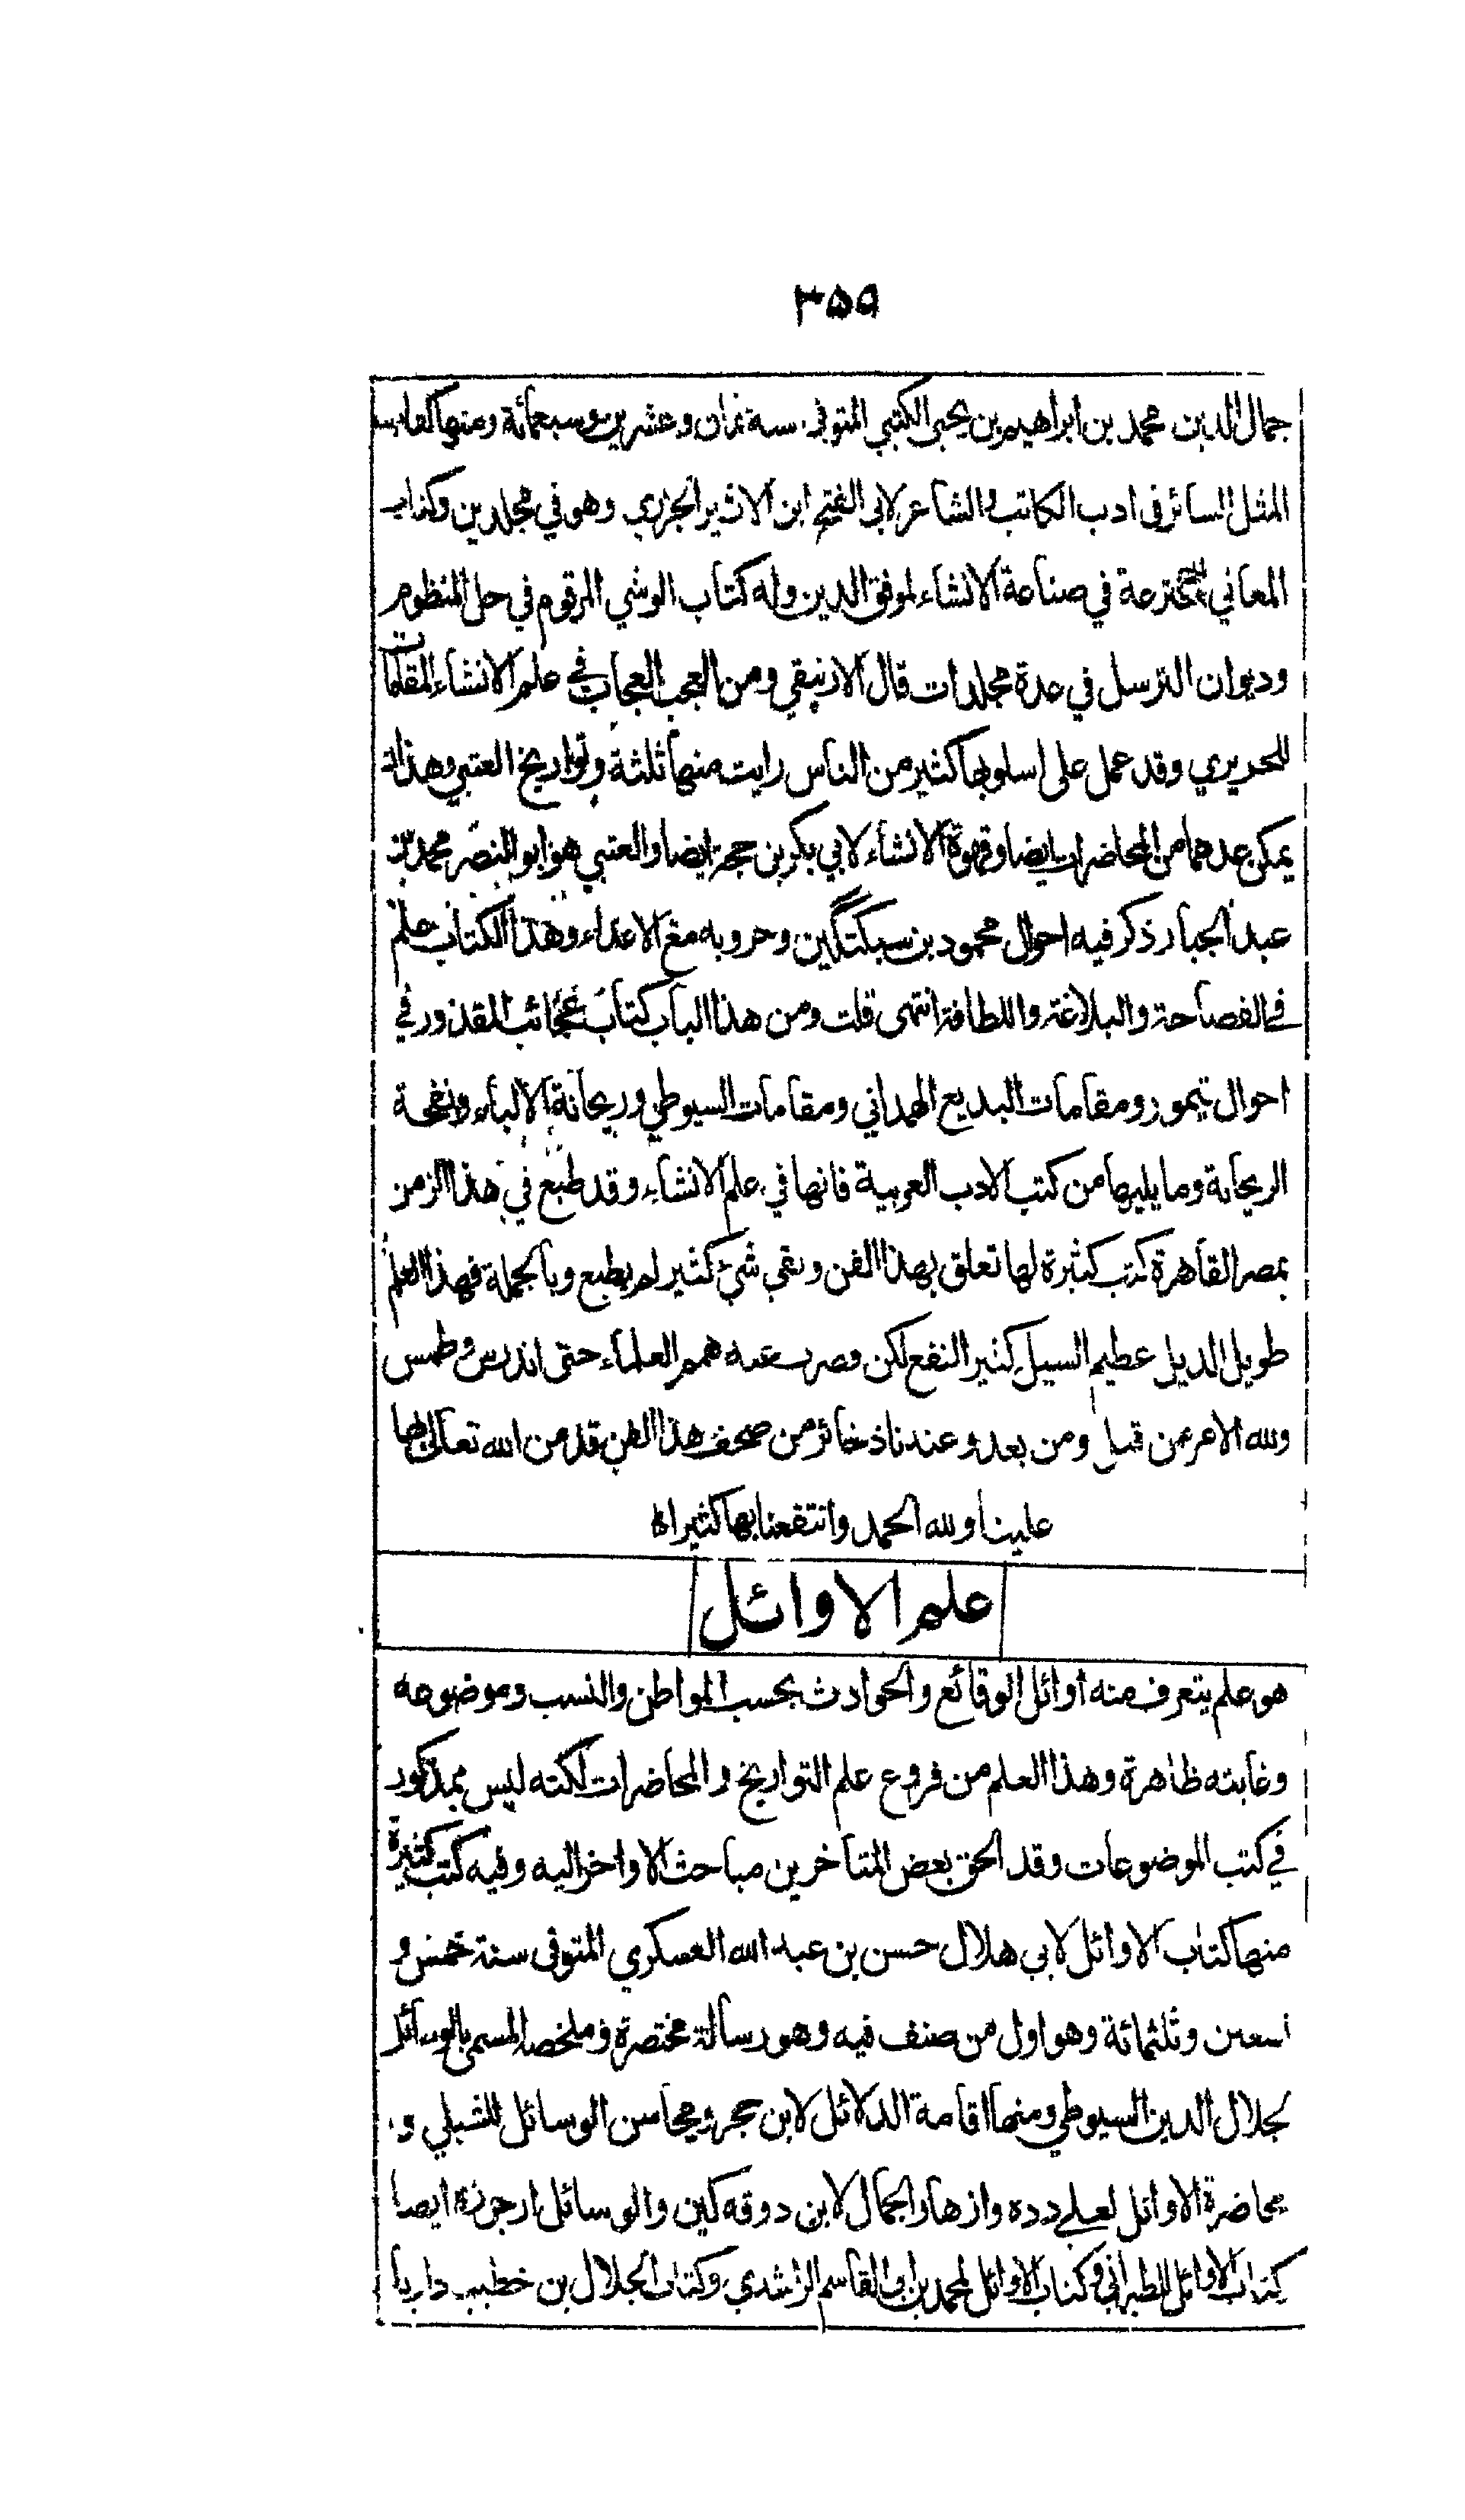 ٣٥٩
جمال الدين محمد بن ابراهيم بن يحيى الكتبي المتوفى سنة ثمان وعشرين وسبعمائة ومنها كتاب
المثل السائر فى ادب الكاتب والشاعر لابي الفتح ابن الاثير الجزري وهو في مجلدين وكتاب
المعاني المخترعة في صناعة الانشاء لموفق الدين وله كتاب الوشي المرقوم في حل المنظوم
وديوان الترسل في عدة مجلدات قال الارنيقي ومن العجب العجاب في علم الانشاء المقامات
للحريري وقد عمل على اسلوبها كثير من الناس رايت منها ثلثة وتواريخ العتبي وهذان
يمكن عدهما من المحاضرات ايضا وقهوة الانشاء لابي بكر بن حجة ايضا والعتبي هو ابو النصر محمد بن
عبد الجبار ذكر فيه احوال محمود بن سبكتگين وحروبه مع الاعداء وهذا الكتاب علم
في الفصاحة والبلاغة واللطافة انتهى قلت ومن هذا الباب كتاب عجائب المقدور في
احوال تيمور ومقامات البديع الهمداني ومقامات السيوطي وريحانة الالباء ونفحة
الريحانة وما يليها من كتب الادب العربية فانها في علم الانشاء وقد طبع في هذا الزمن
بمصر القاهرة كتب كثيرة لها تعلق بهذا الفن وبقي شيء كثير لم يطبع وبالجملة فهذا العلم
طويل الذيل عظيم السيل كثير النفع لكن قصرت عنه همم العلماء حتى اندرس وطمس
ولله الامر من قبل ومن بعد وعندنا ذخائر من صحف هذا الفن قد من الله تعالى بها
علينا ولله الحمد وانتفعنا بها كثيرا
علم الاوائل
هو علم يتعرف منه اوائل الوقائع والحوادث بحسب المواطن والنسب وموضوعه
وغايته ظاهرة وهذا العلم من فروع علم التواريخ والمحاضرات لكنه ليس بمذكور
في كتب الموضوعات وقد الحق بعض المتاخرين مباحث الاواخر اليه وفيه كتب كثيرة
منها كتاب الاوائل لابي هلال حسن بن عبد الله العسكري المتوفى سنة خمس و
تسعين وثلثمائة وهو اول من صنف فيه وهو رسالة مختصرة وملخصه المسمى بالوسائل
لجلال الدين السيوطي ومنها اقامة الدلائل لابن حجر ومحاسن الوسائل للشبلي و
محاضرة الاوائل لعلي دده وازهار الجمال لابن دوقه كين والوسائل ارجوزة ايضا
كتاب الاوائل للطبراني وكتاب الاوائل لمحمد بن ابي القاسم الراشدي وكتاب الجلال بن خطيب داريا